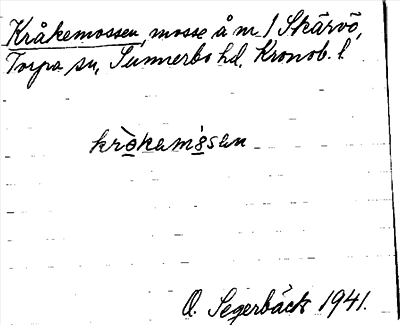 Kråkemossen, mosse å m. 1 Skärvö,
Torpa sn, Sunnerbo hd. Kronob. l.
kròkamòsan
O. Segerbäck 1941.